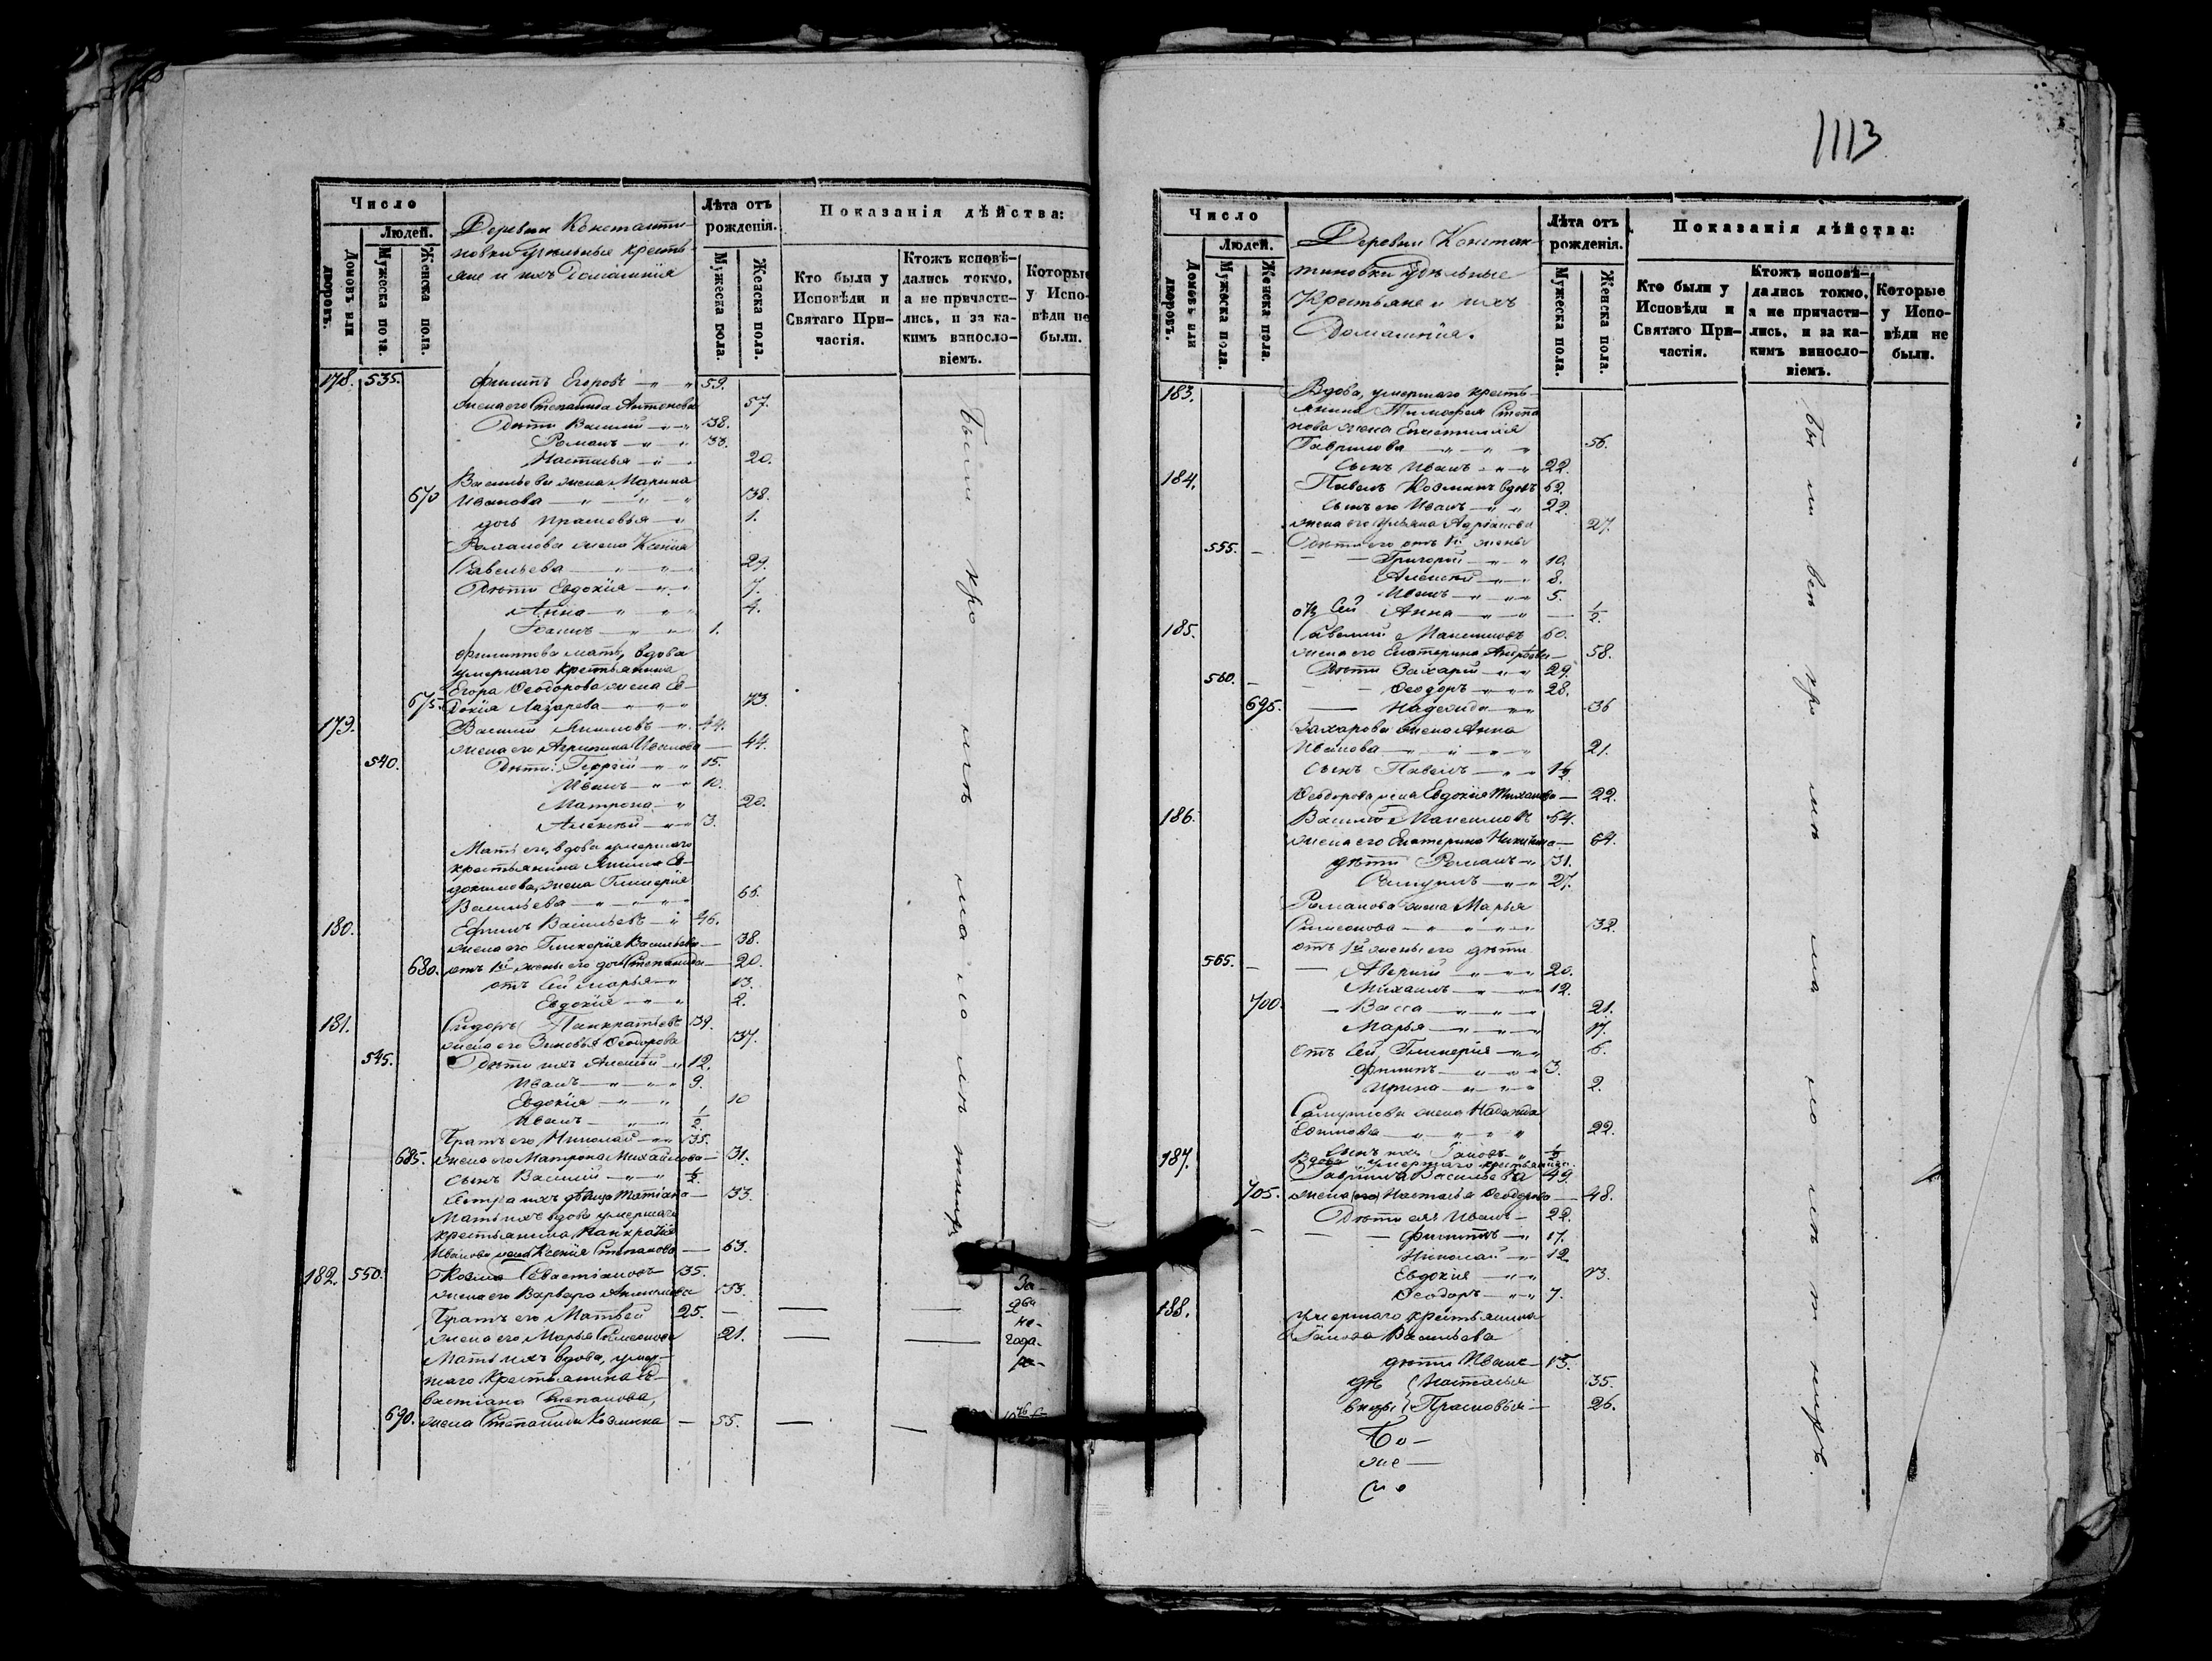 Число
Людей.
Домовъ или дворовъ.
Мужеска пола.
Женска пола.
Деревни Константи-
новки удѣльные кресть-
яне и ихъ Домашнiя
Лѣта отъ рожденія.
Мужеска пола.
Женска пола.
Показанія дѣйства:
Кто были у Исповѣди и Святаго Причастія.
Ктожъ исповѣдались токмо, а не причастились, и за какимъ винословіемъ.
Которые у Исповѣди не были.
178. 535. Филиппъ Егоровъ 59.
жена его Степанида Антонова 57.
Дѣти Василий 38.
Романъ 33.
Настасья 20.
Васильева жена Марина
670 Иванова 38.
дочь Прасковья 1.
Романова жена Ксенiя
Савельева 29.
Дѣти Евдокiя 7.
Анна 4.
1.
Филиппова мать, вдова
умершаго крестьянина
Егора Ѳеодорова жена Ев-
675. докiя Лазарева 73.
179. Василий Якимовъ 44.
жена его Агрипина Иванова 44.
540. Дѣти: Георгiй 15.
Иванъ 10.
Матрона 20.
Алексѣй 3.
Мать его, вдова умершаго
крестьянина Якима Ев-
докимова, жена Гликерiя
Васильева 66.
180. Ефимъ Васильевъ 46.
жена его Гликерiя Васильева 38.
680. отъ 1й жены его дочь Степанида 20.
отъ сей Марья 13.
Евдокiя 2.
181. Сидоръ Панкратьевъ 39.
жена его Зиновья Ѳеодорова 37.
545. Дѣти ихъ Алексѣй 12.
Иванъ 9.
Евдокiя 10
Иванъ 1/2.
Братъ его, Николай 35.
685. жена его Матрона Михайлова 31.
сынъ Василий 1/2.
Сестра ихъ дѣвица Татiана 33.
Мать ихъ вдова умершаго
крестьянина Панкратiя
Иванова жена Ксенiя Степанова 63.
182. 550. Козма Севастiановъ 35.
жена его Варвара 33.
Братъ его Матвей 25.
жена его Марья Симеонова 21.
Мать ихъ вдова, умер-
шаго крестьянина Се-
вастiана Степанова,
690. жена Степанида Козмина 55.
Были кро мѣ ма ло лѣ тнихъ
За-
не-
года-
1113
Число
Людей.
Домовъ или дворовъ.
Мужеска пола.
Женска пола.
Деревни Констан-
тиновки Удѣльные
Крестьяне и ихъ
Домашнiя.
Лѣта отъ рожденія.
Мужеска пола.
Женска пола.
Показанія дѣйства:
Кто были у Исповѣди и Святаго Причастія.
Ктожъ исповѣдались токмо, а не причастились, и за какимъ винословіемъ.
Которые у Исповѣди не были.
183. Вдова, умершаго кресть-
янина Тимофея Степа
нова жена
Гаврилова 56.
Сынъ Иванъ 22.
184. Павелъ Козминъ вдовъ 62.
Сынъ его Иванъ 22.
жена его Ульяна Адрiанова 27.
555. Дѣти его отъ 1й жены
Григорiй 10.
Алексѣй 8.
Иванъ 5.
отъ Сей Анна 1/2.
185. Савелий Максимовъ 60.
жена его Екатерина Андреева 58.
560. Дѣти Захарiй 29.
Ѳеодоръ 28.
695. Надежда 36
Захарова жена Анна
Иванова 21.
Сынъ Павелъ 1 1/2
Ѳеодорова жена Евдокiя 22.
186. Василий Максимовъ 64.
жена его Екатерина Никитина 64.
дѣти Романъ 31.
Самуилъ 27.
Романова жена Марья
Симеонова 32.
отъ 1й жены его дѣти
565. Аверкiй 20.
Михаилъ 12.
700. Васса 21.
Марья 17.
Отъ Сей, Гликерiя 6.
Филипъ 3.
Ирина 2.
Самуилова жена Надежда
Ефимова 22.
Сынъ ихъ 1/2
187. Вдова умершаго крестьянина
Гаврила Васильева 49.
705. жена (его) Настасья Ѳеодорова 48.
Дѣти ея Иванъ 22.
Филиппъ 17.
Николай 12
Евдокiя 13.
Ѳеодоръ 7.
188. умершаго крестьянина
Васильева
дѣти Иванъ 15.
дѣ Наталья 35.
вицы Прасковья 26.
Бы ли всѣ кро мѣ ма ло лѣ т нихъ.